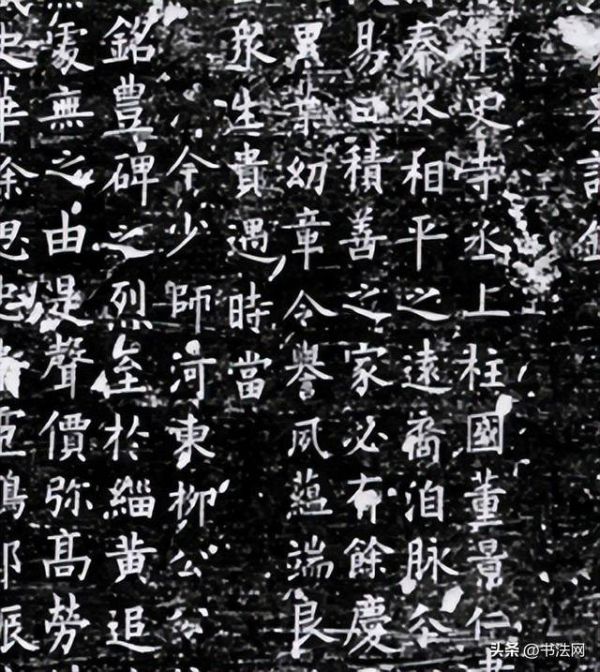 史寺丞上柱國董景仁
秦丞相平之遠裔洎脉公
易曰積善之家必有餘慶
異葉幼章令譽夙蘊端良
衆貴遇時當
今少師河東柳公公
銘豊碑之烈至於緇黄追
處無之由是聲價弥髙勞
头条 @书法网